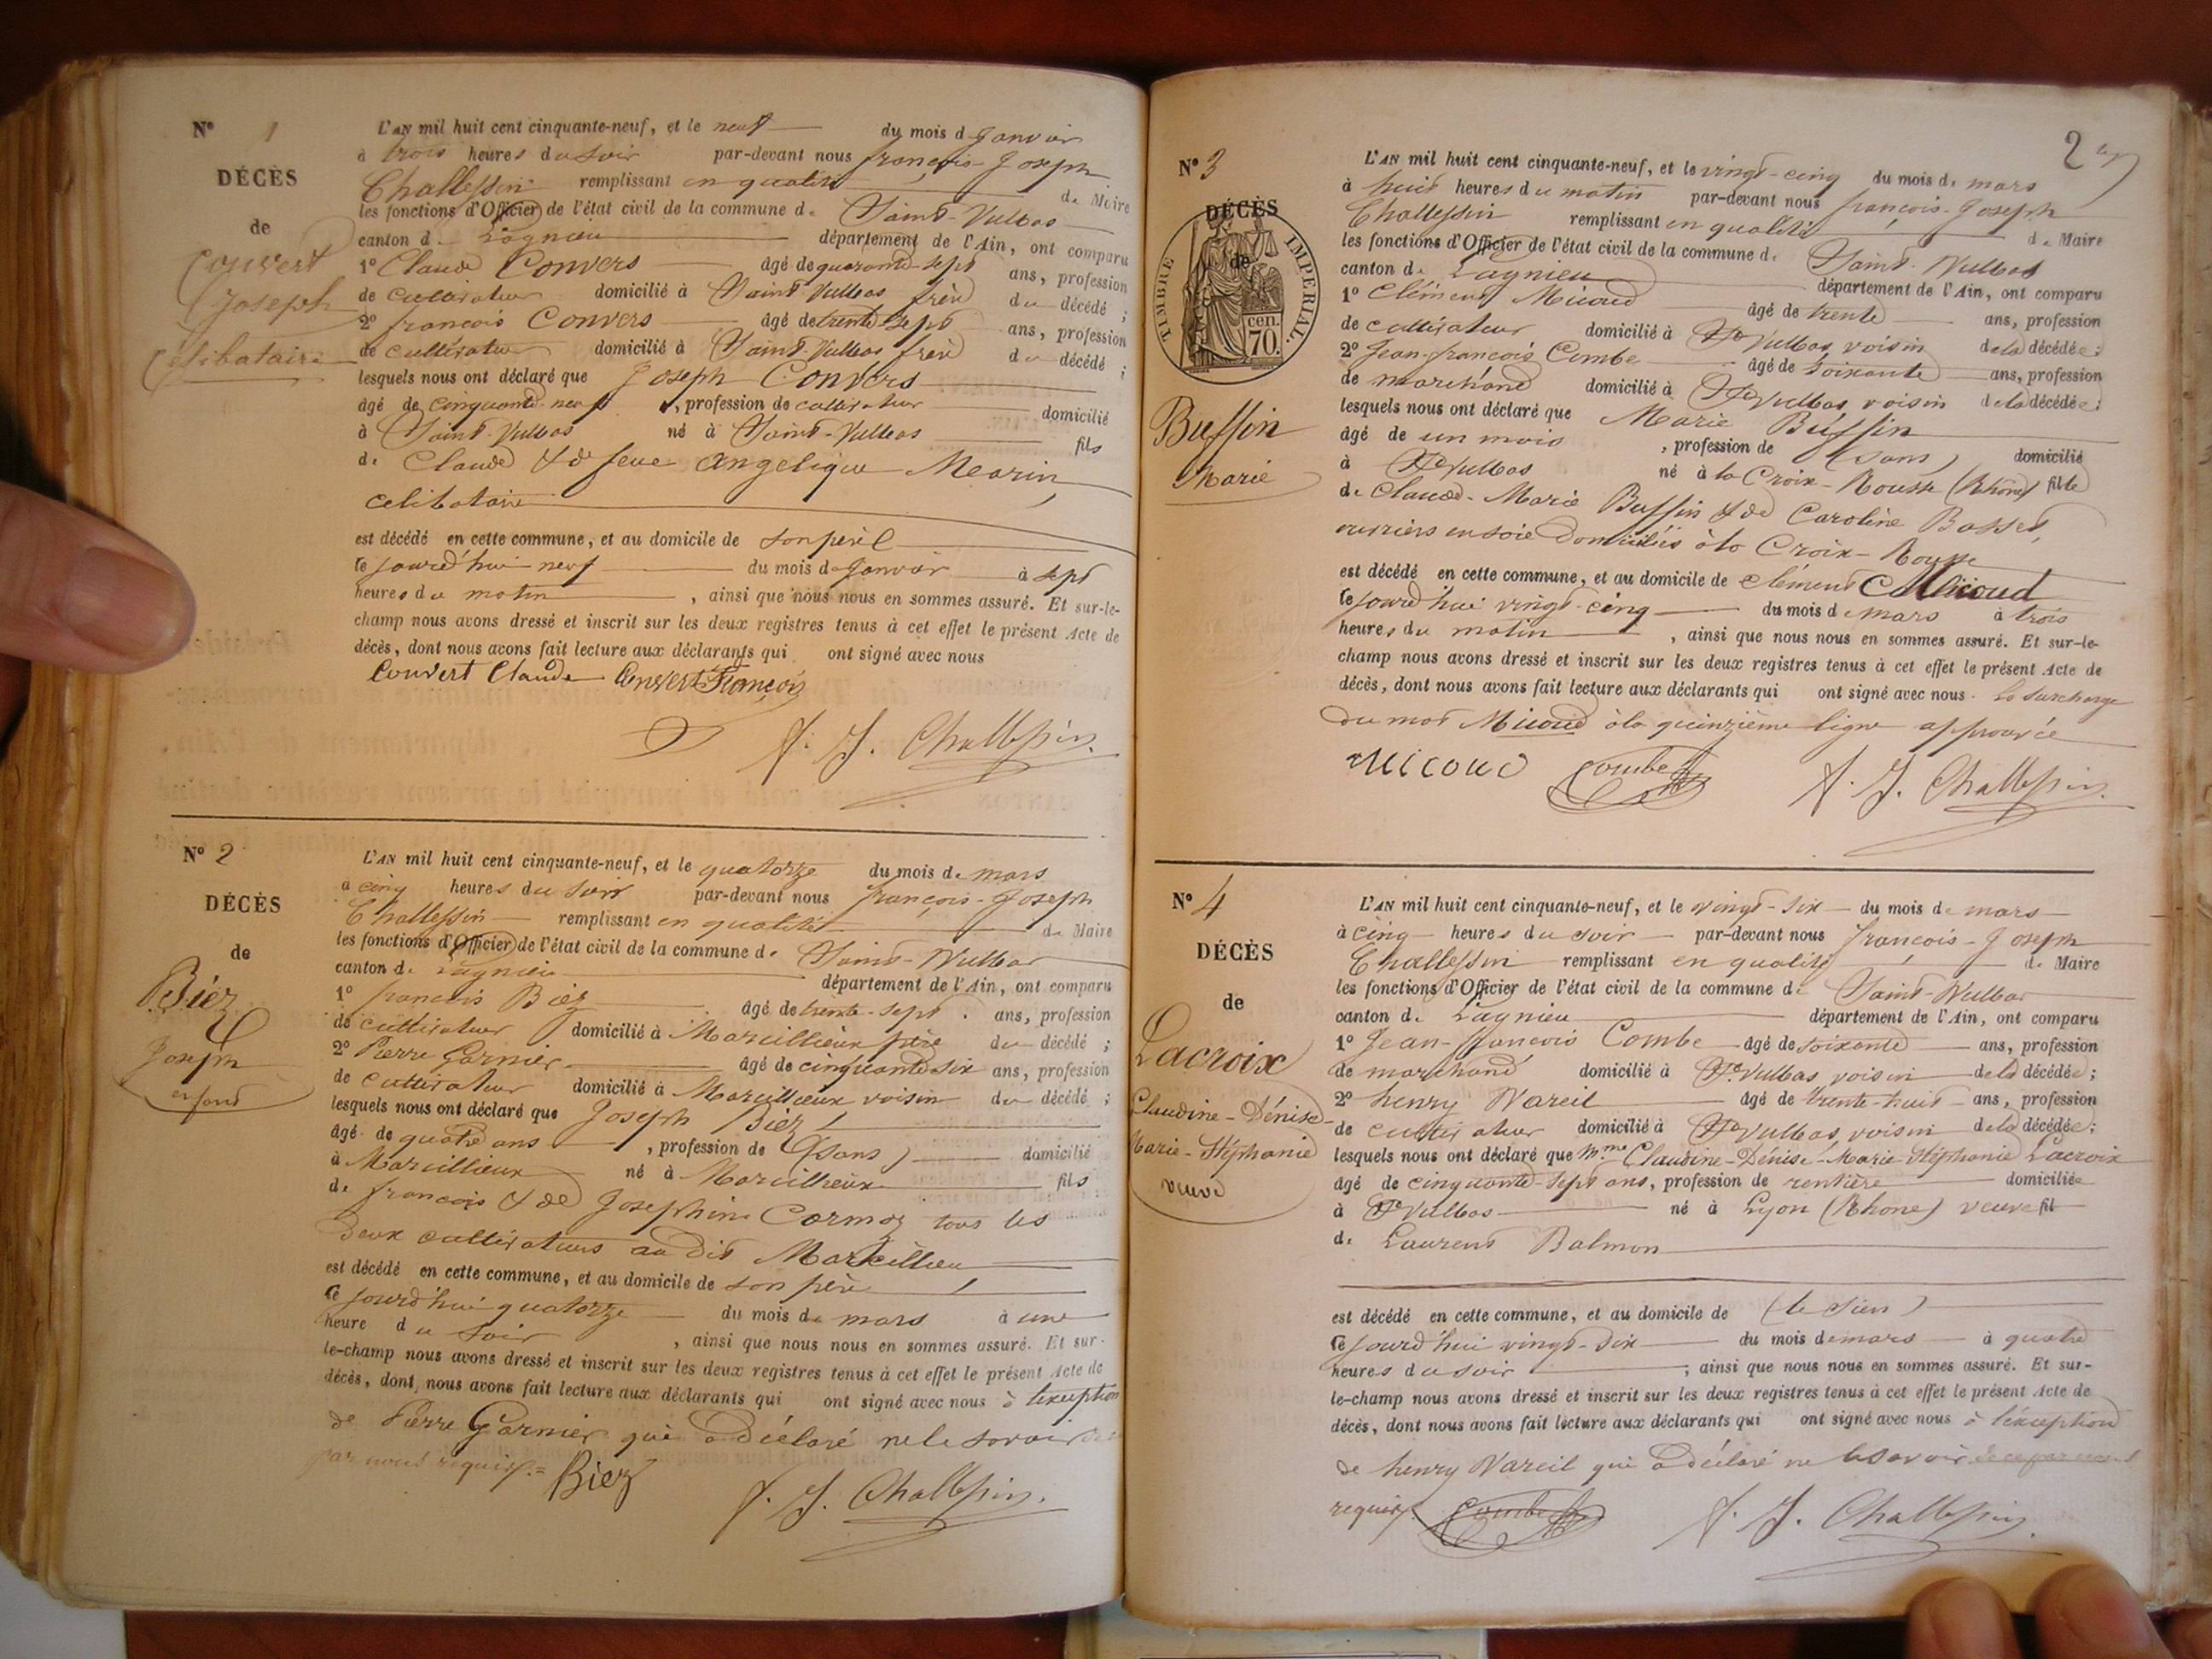 N° 1
DÉCÈS
de
Convert
Joseph
Célibataire
L'AN mil huit cent cinquante-neuf, et le neuf du mois d Janvier
à trois heures du soir par-devant nous françois-Joseph
Challessin remplissant en qualité de Maire
les fonctions d'Officier de l'état civil de la commune de Saint-Vulbas
canton de Lagnieu département de l'Ain, ont comparu
1° Claude Convers âgé de quarante-sept ans, profession
de cultivateur domicilié à Saint-Vulbas frère du décédé ;
2° françois Convers âgé de trente sept ans, profession
de cultivateur domicilié à Saint-Vulbas frère du décédé ;
lesquels nous ont déclaré que Joseph Convers
âgé de cinquante-neuf , profession de cultivateur domicilié
à Saint-Vulbas né à Saint-Vulbas fils
de Claude & de feue Angelique Mearin
celibataire
est décédé en cette commune, et au domicile de son père
ce jourd'hui neuf du mois de Janvier à sept
heures du matin , ainsi que nous nous en sommes assuré. Et sur-le-
champ nous avons dressé et inscrit sur les deux registres tenus à cet effet le présent Acte de
décès, dont nous avons fait lecture aux déclarants qui ont signé avec nous
Convert Claude Convert François
f. J. Challessin
N° 2
DÉCÈS
de
Biéz
Joseph
enfant
L'AN mil huit cent cinquante-neuf, et le quatorze du mois de mars
à cinq heures du soir par-devant nous françois-Joseph
Challessin remplissant en qualité de Maire
les fonctions d'Officier de l'état civil de la commune de Saint-Vulbas
canton de Lagnieu département de l'Ain, ont comparu
1° françois Biéz âgé de trente-sept ans, profession
de cultivateur domicilié à Marcillieux père du décédé ;
2° Pierre Garnier âgé de cinquante six ans, profession
de cultivateur domicilié à Marcillieux voisin du décédé ;
lesquels nous ont déclaré que Joseph Biéz
âgé de quatre ans , profession de (sans) domicilié
à Marcillieux né à Marcillieux fils
de françois & de Josephine Cormoz tous les
deux cultivateurs au dit Marcillieu
est décédé en cette commune, et au domicile de son père
ce jourd'hui quatorze du mois de mars à une
heure du soir , ainsi que nous nous en sommes assuré. Et sur-
le-champ nous avons dressé et inscrit sur les deux registres tenus à cet effet le présent Acte de
décès, dont nous avons fait lecture aux déclarants qui ont signé avec nous à l'exception
de Pierre Garnier qui a déclaré ne le savoir de ce
par nous requis.= Biez
f. J. Challessin
2
N° 3
DÉCÈS
de
TIMBRE IMPERIAL
70 cen.
Buffin
Marie
L'AN mil huit cent cinquante-neuf, et le vingt-cinq du mois de mars
à huit heures du matin par-devant nous françois-Joseph
Challessin remplissant en qualité de Maire
les fonctions d'Officier de l'état civil de la commune de Saint-Vulbas
canton de Lagnieu département de l'Ain, ont comparu
1° Clément Micoud âgé de trente ans, profession
de cultivateur domicilié à St Vulbas voisin de la décédée ;
2° Jean-françois Combe âgé de soixante ans, profession
de marchand domicilié à St Vulbas voisin de la décédée ;
lesquels nous ont déclaré que Marie Buffin
âgé de un mois , profession de (sans) domicilié
à St Vulbas né à la Croix-Rousse (Rhône) fille
de Claude-Marie Buffin & de Caroline Basset,
ouvriers en soie domiciliés à la Croix-Rousse
est décédé en cette commune, et au domicile de Clément Micoud
ce jourd'hui vingt-cinq du mois de mars à trois
heures du matin , ainsi que nous nous en sommes assuré. Et sur-le-
champ nous avons dressé et inscrit sur les deux registres tenus à cet effet le présent Acte de
décès, dont nous avons fait lecture aux déclarants qui ont signé avec nous. La surcharge
du mot Micoud à la quinzième ligne approuvée
Micoud Combe f. J. Challessin
N° 4
DÉCÈS
de
Lacroix
Claudine-Dénise-
Marie-Stéphanie
veuve
L'AN mil huit cent cinquante-neuf, et le vingt-six du mois de mars
à cinq heures du soir par-devant nous françois-Joseph
Challessin remplissant en qualité de Maire
les fonctions d'Officier de l'état civil de la commune de Saint-Vulbas
canton de Lagnieu département de l'Ain, ont comparu
1° Jean-françois Combe âgé de soixante ans, profession
de marchand domicilié à St Vulbas voisin de la décédée ;
2° henry Vareil âgé de trente-huit ans, profession
de cultivateur domicilié à St Vulbas voisin de la décédée ;
lesquels nous ont déclaré que Mme Claudine-Dénise-Marie-Stéphanie Lacroix
âgé de cinquante-sept ans, profession de rentière domiciliée
à St Vulbas né à Lyon (Rhone) veuve fil
de Laurent Balmon
est décédé en cette commune, et au domicile de (le sien)
ce jourd'hui vingt-six du mois de mars à quatre
heures du soir ; ainsi que nous nous en sommes assuré. Et sur-
le-champ nous avons dressé et inscrit sur les deux registres tenus à cet effet le présent Acte de
décès, dont nous avons fait lecture aux déclarants qui ont signé avec nous à l'exception
de henry Vareil qui a déclaré ne le savoir de ce par nous
requis. Combe f. J. Challessin